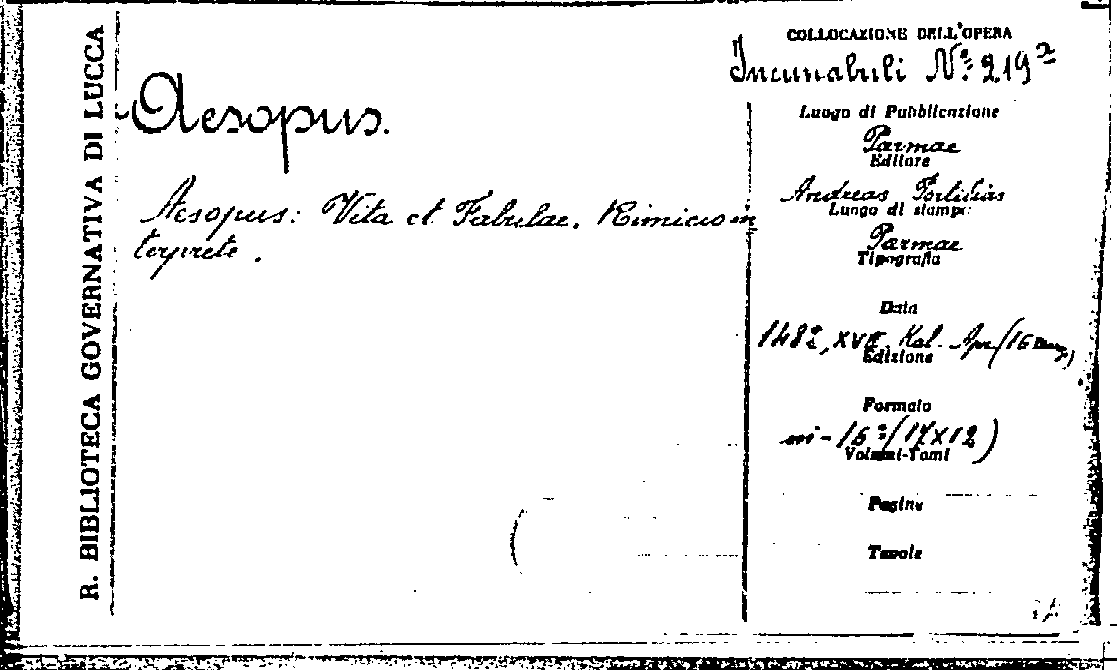 R. BIBLIOTECA GOVERNATIVA DI LUCCA
Aesopus.
Aesopus: Vita et Fabulae. Rimicio in
terprete.
COLLOCAZIONE DELL'OPERA
Incunabuli Nº. 219
Luogo di Pubblicazione
Parmae
Editore
Andreas Portilias
Luogo di stampa
Parmae
Tipografia
Data
1482, XVII. Kal. Apr (16
Edizione
Formato
in-16º (17X12)
Volumi-Tomi
Pagine
Tavole